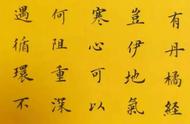 有丹橘經
豈伊地氣
寒心可以
何阻重深
遇循環不